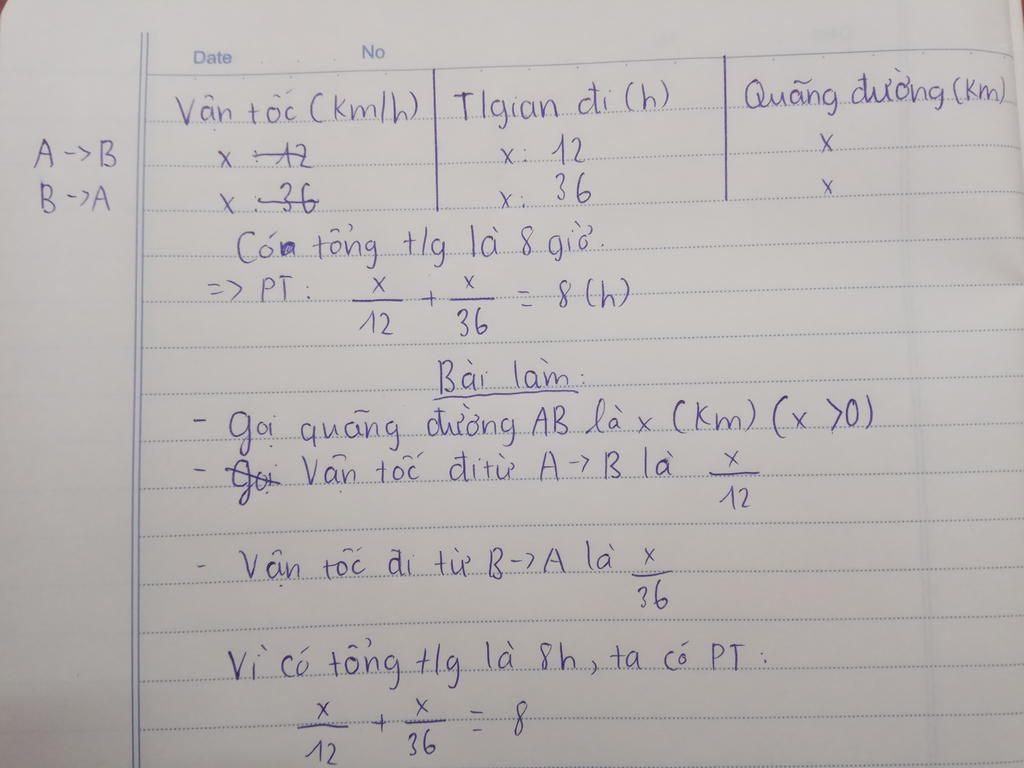 Date No
Vận tốc (Km/h) T/gian đi (h) Quãng đường (Km)
A->B x : 12 x: 12 x
B->A x : 36 x: 36 x
Có tổng t/g là 8 giờ.
=> PT: x/12 + x/36 = 8 (h)
Bài làm:
- Gọi quãng đường AB là x (Km) (x >0)
- Gọi Vận tốc đi từ A->B là x/12
- Vận tốc đi từ B->A là x/36
Vì có tổng t/g là 8h, ta có PT:
x/12 + x/36 = 8